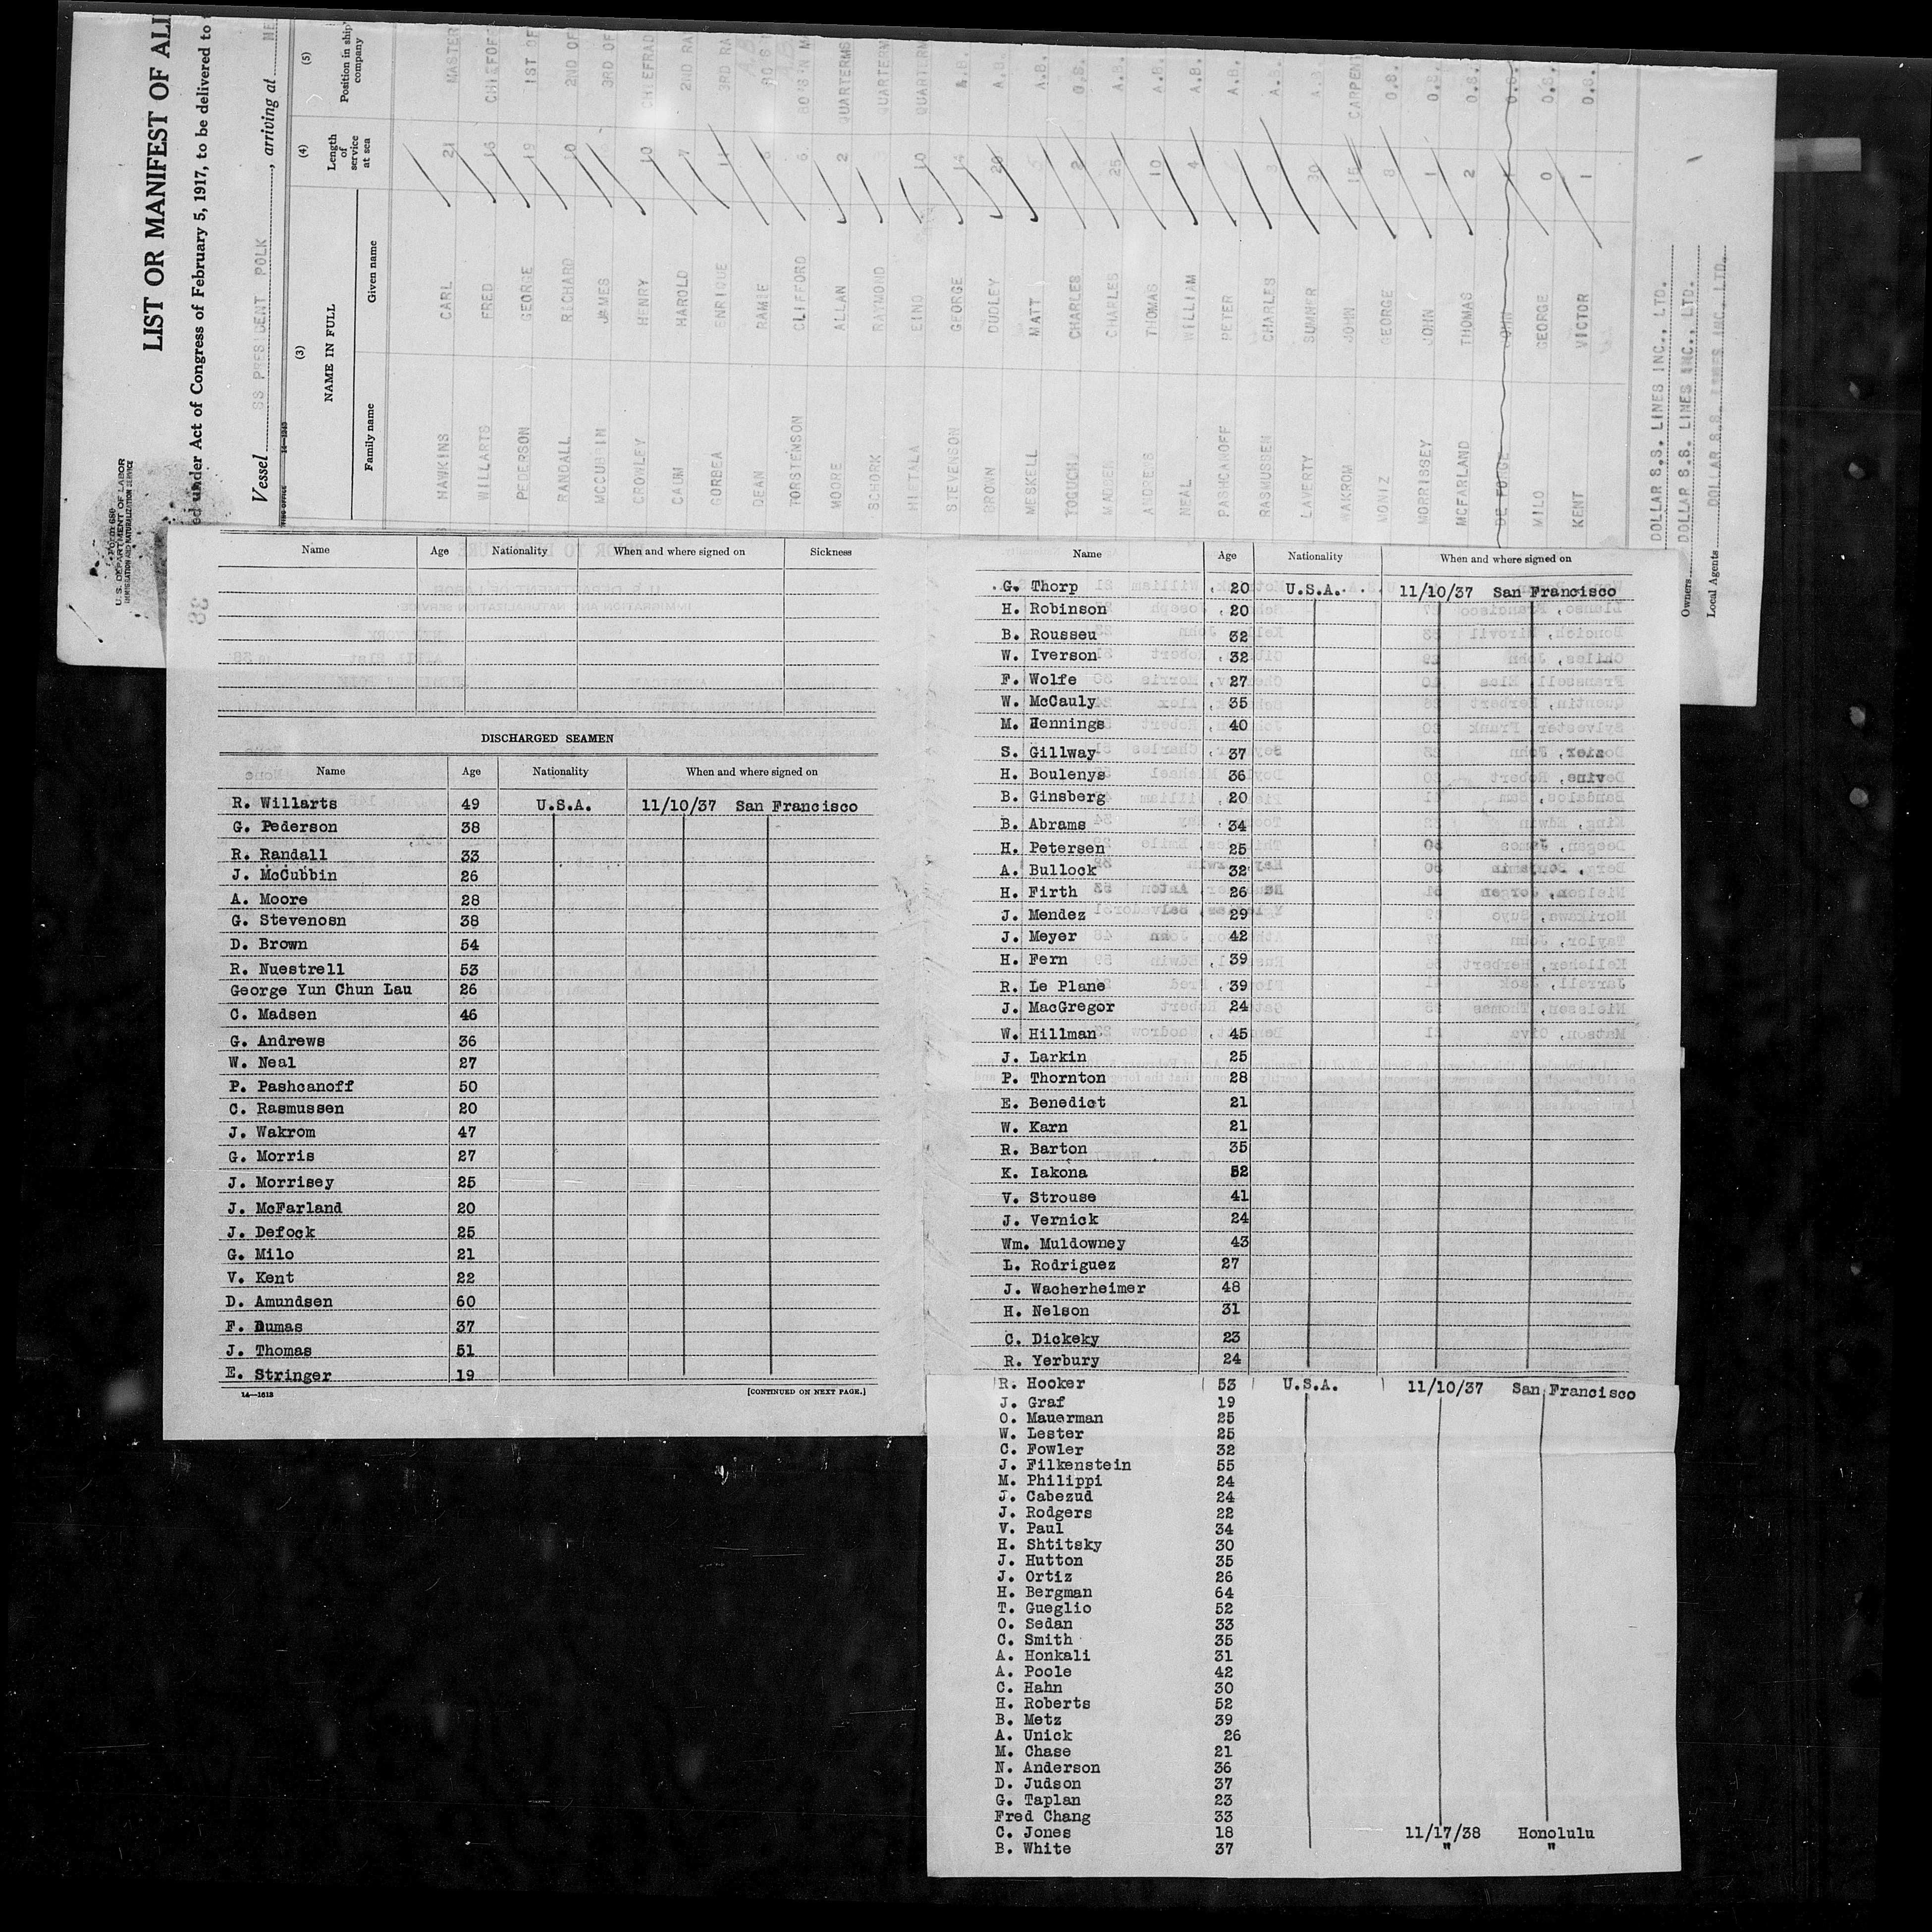 LIST OR MANIFEST OF
under Act of Congress of February 5, 1917, to be delivered to
Vessel SS PRESIDENT POLK, arriving at
U.S. DEPARTMENT OF LABOR
IMMIGRATION AND NATURALIZATION SERVICE
(3) (4) (5)
NAME IN FULL Length of service at sea Position in ship company
Family name Given name
HAWKINS CARL 21 MASTER
WILLARTS FRED 16
PEDERSON GEORGE 19 1ST OF
RANDALL RICHARD 10 2ND OF
MCCUBBIN JAMES 3RD OF
CROWLEY HENRY 10
CAUM HAROLD 7 2ND RA
CORBEA ENRIQUE 11 3RD RA
DEAN RAMIE
TORSTENSON CLIFFORD 6
MOORE ALLAN 2 QUARTERMS
SCHORK RAYMOND QUARTERM
HIETALA EINO 10 QUARTERM
STEVENSON GEORGE 14 A.B.
BROWN DUDLEY 20 A.B.
MESKELL MATT A.B.
CHARLES 2 O.S.
MADSEN CHARLES 25 A.B.
THOMAS 10 A.B.
NEAL WILLIAM 4 A.B.
PASHCANOFF PETER A.B.
RASMUSSEN CHARLES 3 A.B.
LAVERTY SUMNER 30 A.B.
WAKROM JOHN 15 CARPEN
MONIZ GEORGE 8 O.S.
MORRISSEY JOHN 1 O.S.
MCFARLAND THOMAS 2 O.S.
DE FORGE JOHN O.S.
MILO GEORGE 0 O.S.
KENT VICTOR 1 O.S.
DOLLAR S.S. LINES INC., LTD.
Owners DOLLAR S.S. LINES INC., LTD.
Local Agents DOLLAR S.S. LINES INC., LTD.
Name Age Nationality When and where signed on Sickness
DISCHARGED SEAMEN
Name Age Nationality When and where signed on
R. Willarts 49 U.S.A. 11/10/37 San Francisco
G. Pederson 38
R. Randall 33
J. McCubbin 26
A. Moore 28
G. Stevenosn 38
D. Brown 54
R. Nuestrell 53
George Yun Chun Lau 26
C. Madsen 46
G. Andrews 36
W. Neal 27
P. Pashcanoff 50
C. Rasmussen 20
J. Wakrom 47
G. Morris 27
J. Morrisey 25
J. McFarland 20
J. Defock 25
G. Milo 21
V. Kent 22
D. Amundsen 60
F. Dumas 37
J. Thomas 51
E. Stringer 19
14—1613 [CONTINUED ON NEXT PAGE.]
Name Age Nationality When and where signed on
G. Thorp 20 U.S.A. 11/10/37 San Francisco
H. Robinson 20
B. Rousseu 32
W. Iverson 32
F. Wolfe 27
W. McCauly 35
M. Hennings 40
S. Gillway 37
H. Boulenys 36
B. Ginsberg 20
B. Abrams 34
H. Petersen 25
A. Bullock 32
H. Firth 26
J. Mendez 29
J. Meyer 42
H. Fern 39
R. Le Plane 39
J. MacGregor 24
W. Hillman 45
J. Larkin 25
P. Thornton 28
E. Benedict 21
W. Karn 21
R. Barton 35
K. Iakona 52
V. Strouse 41
J. Vernick 24
Wm. Muldowney 43
L. Rodriguez 27
J. Wacherheimer 48
H. Nelson 31
C. Dickeky 23
R. Yerbury 24
R. Hooker 53 U.S.A. 11/10/37 San Francisco
J. Graf 19
O. Mauerman 25
W. Lester 25
C. Fowler 32
J. Filkenstein 55
M. Philippi 24
J. Cabezud 24
J. Rodgers 22
V. Paul 34
H. Shtitsky 30
J. Hutton 35
J. Ortiz 26
H. Bergman 64
T. Gueglio 52
O. Sedan 33
C. Smith 35
A. Honkali 31
A. Poole 42
C. Hahn 30
H. Roberts 52
B. Metz 39
A. Unick 26
M. Chase 21
N. Anderson 36
D. Judson 37
G. Taplan 23
Fred Chang 33
C. Jones 18 11/17/38 Honolulu
B. White 37 " "